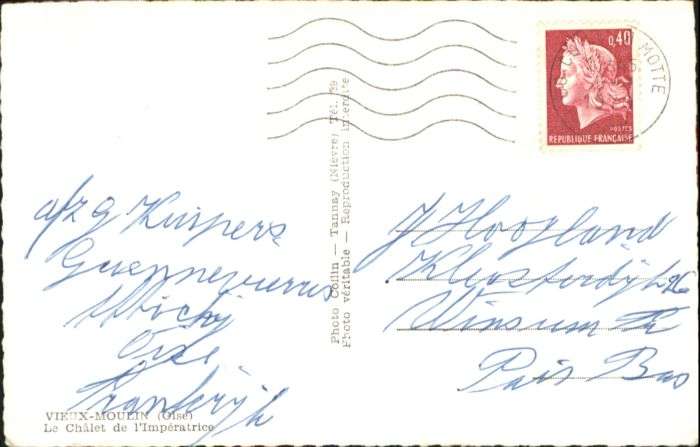 0,40
MOTTE
POSTES
REPUBLIQUE FRANÇAISE
a/z g Kuipers
Attichy
Oise
Frankrijk
Photo Collin — Tannay (Nièvre) Tél. 39
Photo véritable — Reproduction interdite
J Hoogland
Kloosterdijk 26
Winsum Gr
Pais Bas
VIEUX-MOULIN (Oise)
Le Châlet de l'Impératrice